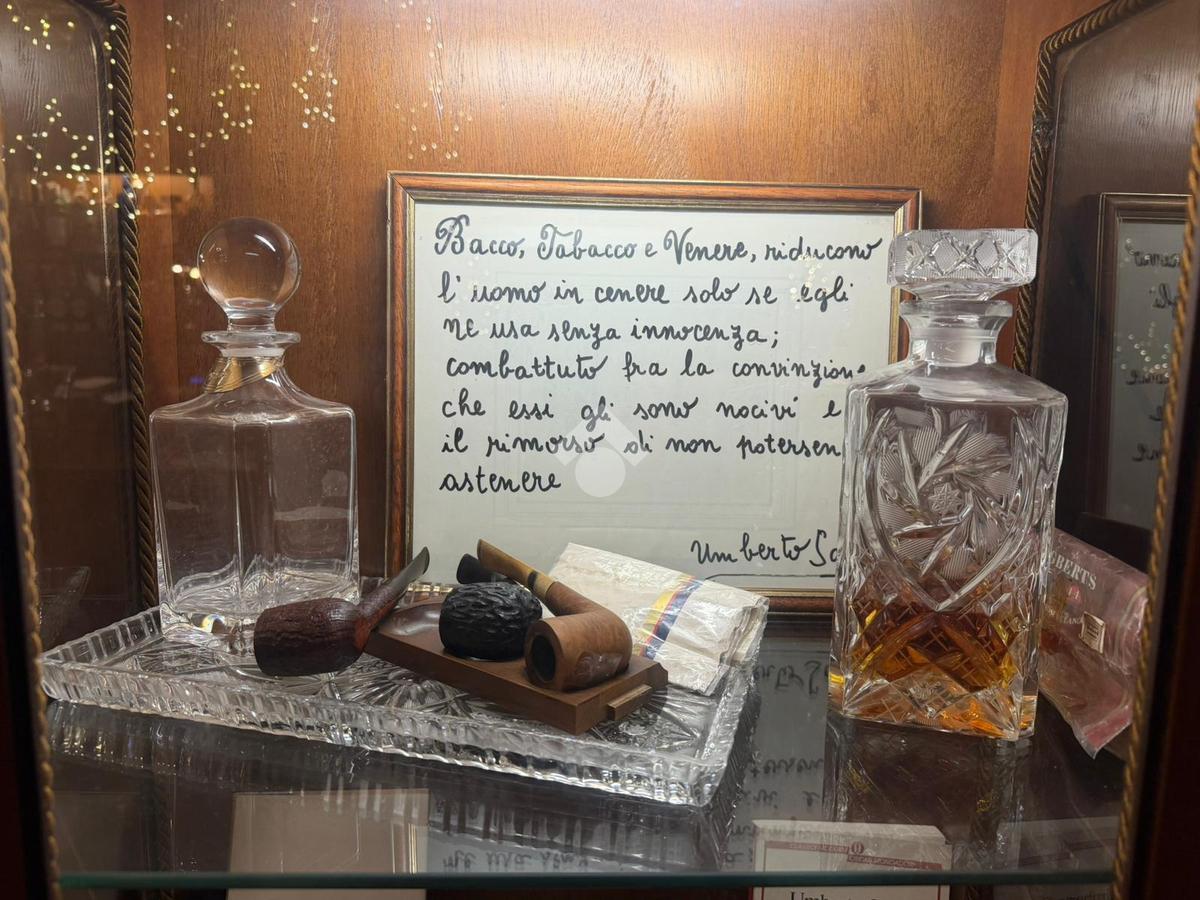 Bacco, Tabacco e Venere, riducono
l'uomo in cenere solo se egli
ne usa senza innocenza;
combattuto fra la convinzione
che essi gli sono nocivi e
il rimorso di non potersen
astenere
Umberto Sa
BERTS